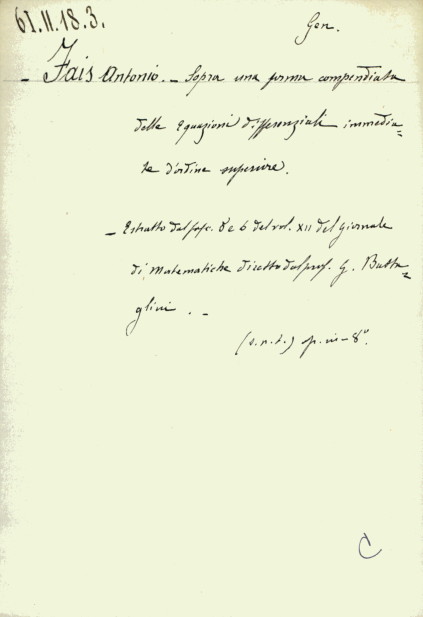 61.11.18.3.
Gen.
- Fais Antonio. - Sopra una forma compendiata
delle Equazioni differenziali immedia=
te d'ordine superiore.
- Estratto dal fasc. 8 e 6 del vol. XII del Giornale
di Matematiche diretto dal prof. G. Batta=
glini. -
(s.n.t.) op. in-8°.
C